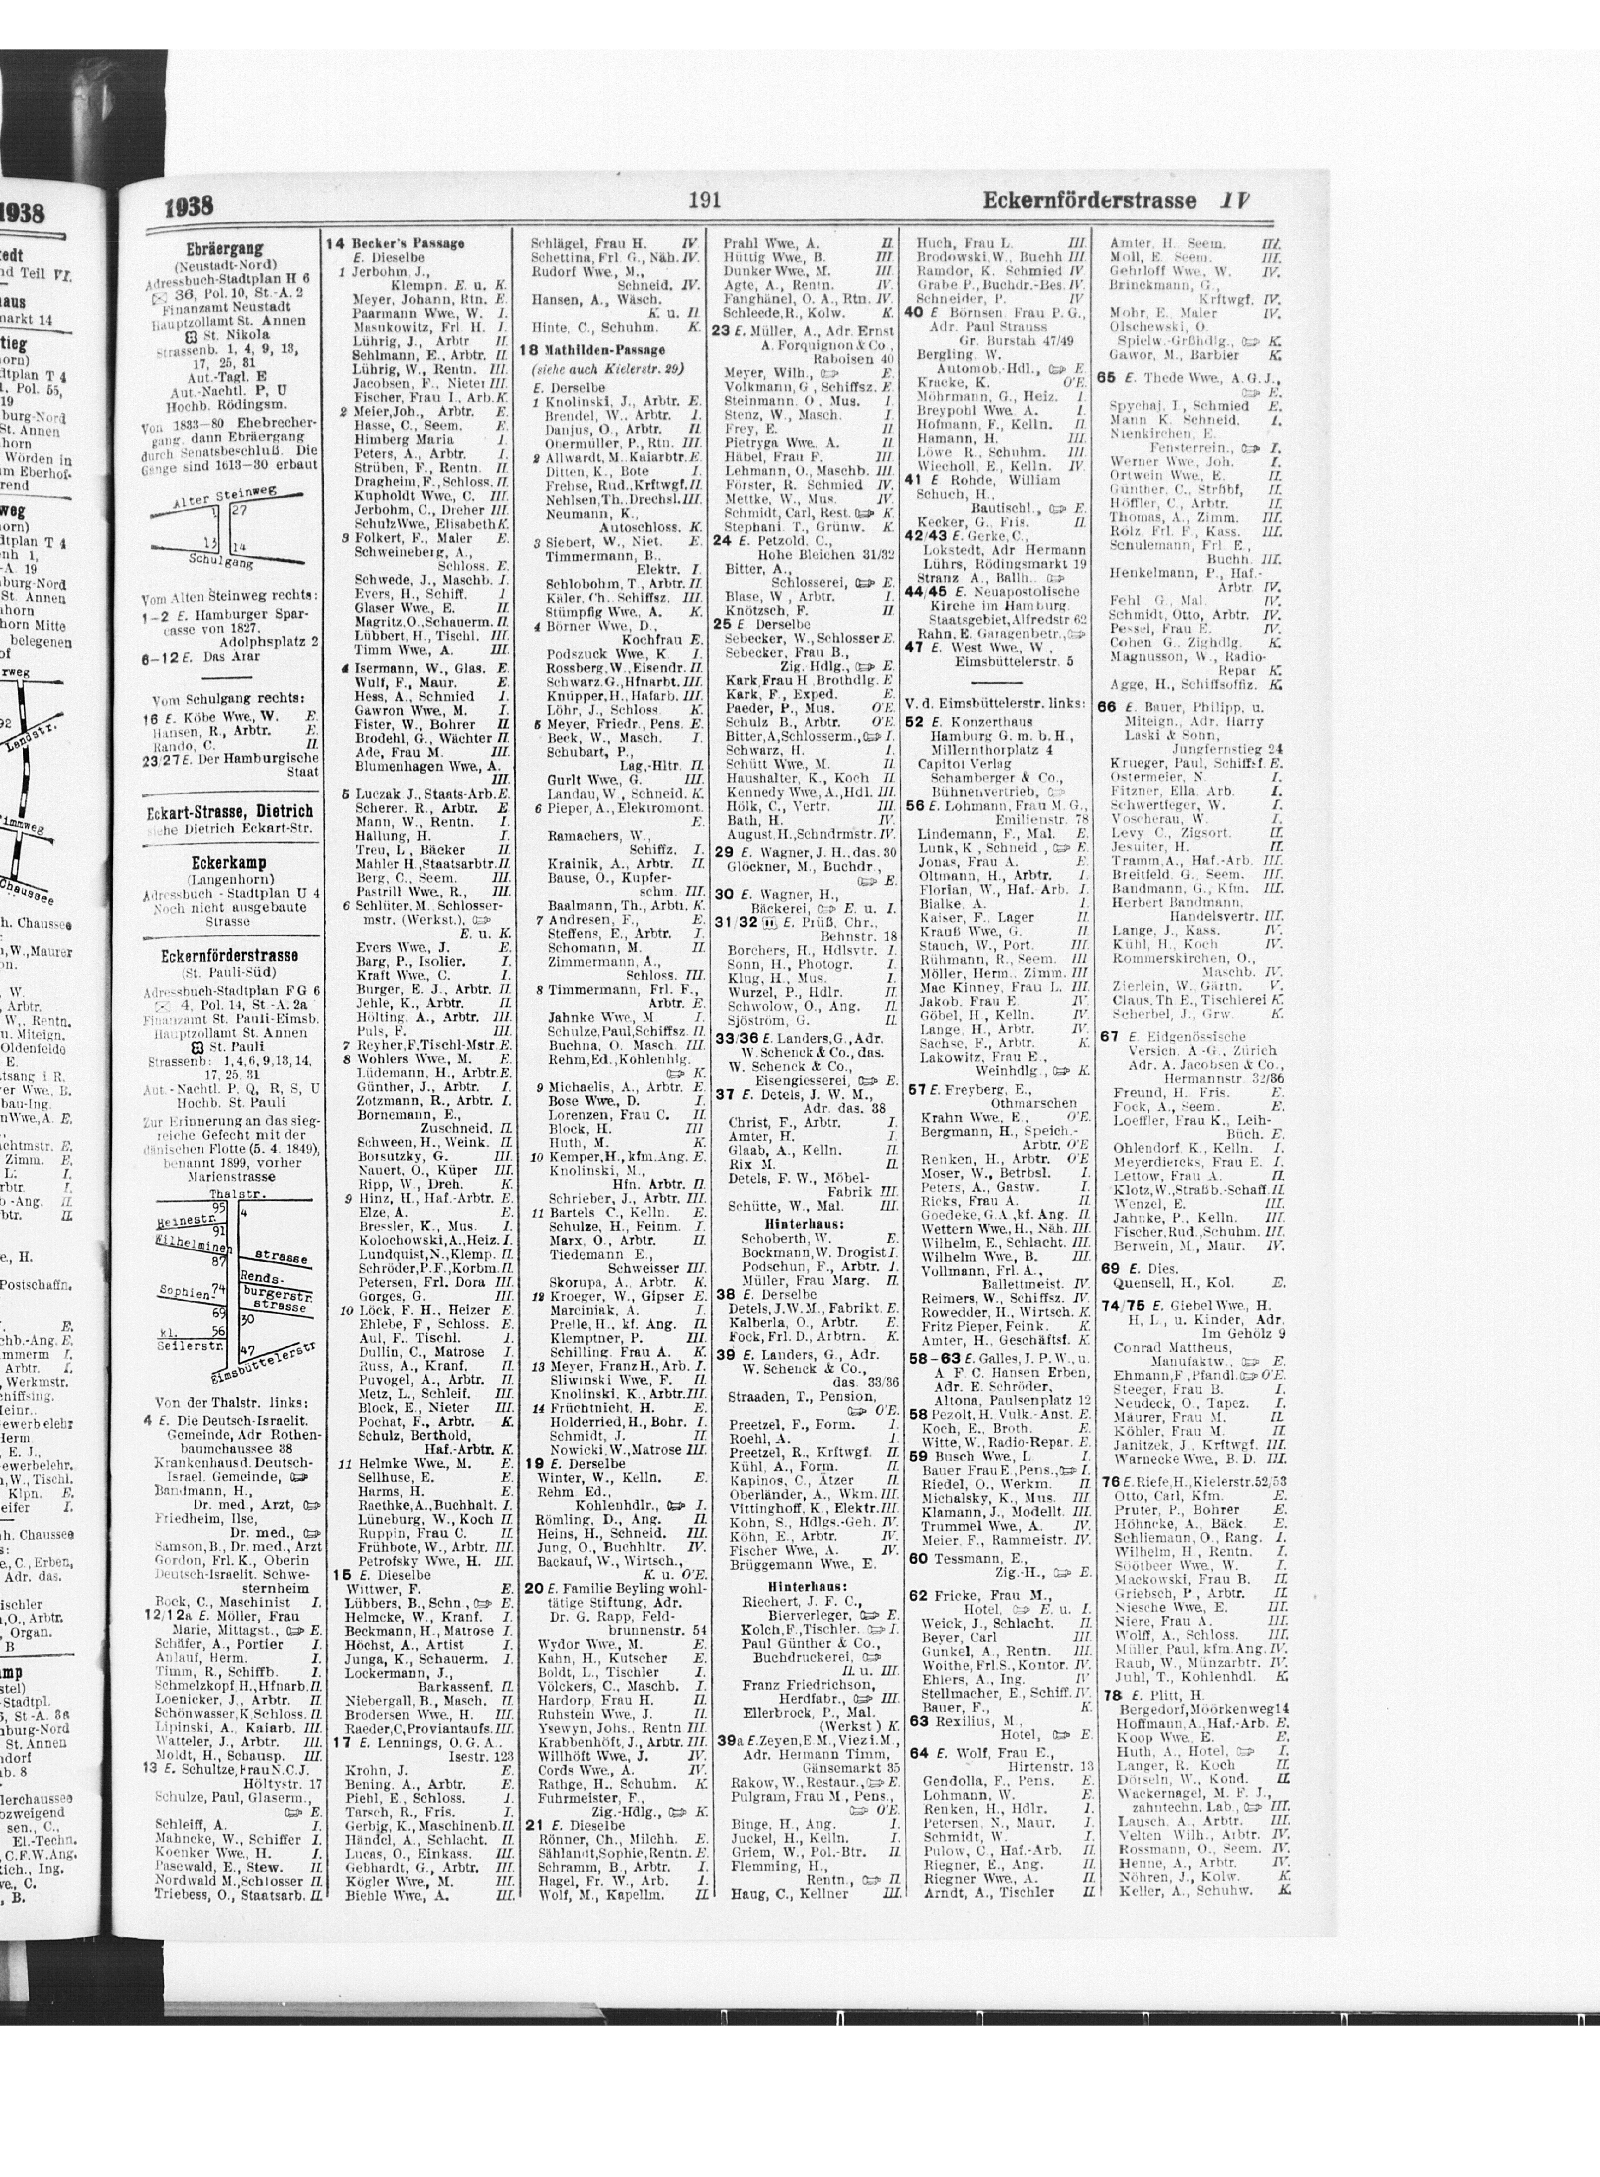 1938
191
Eckernförderstrasse IV
Ebräergang
(Neustadt-Nord)
Adressbuch-Stadtplan H 6
36, Pol. 10, St.-A. 2
Finanzamt Neustadt
Hauptzollamt St. Annen
St. Nikola
Strassenb. 1, 4, 9, 13,
17, 25, 31
Aut.-Tagl. E
Aut.-Nachtl. P, U
Hochb. Rödingsm.
Von 1833—80 Ehebrecher-
gang, dann Ebräergang
durch Senatsbeschluß. Die
Gänge sind 1613—30 erbaut
Alter Steinweg
1 27
13 14
Schulgang
Vom Alten Steinweg rechts:
1—2 E. Hamburger Spar-
casse von 1827.
Adolphsplatz 2
6—12 E. Das Arar
Vom Schulgang rechts:
16 E. Köbe Wwe., W. E.
Hansen, R., Arbtr. E.
Rando, C. II.
23/27 E. Der Hamburgische
Staat
Eckart-Strasse, Dietrich
siehe Dietrich Eckart-Str.
Eckerkamp
(Langenhorn)
Adressbuch - Stadtplan U 4
Noch nicht ausgebaute
Strasse
Eckernförderstrasse
(St. Pauli-Süd)
Adressbuch-Stadtplan FG 6
4, Pol. 14, St.-A. 2a
Finanzamt St. Pauli-Eimsb.
Hauptzollamt St. Annen
St. Pauli
Strassenb: 1,4,6,9,13,14,
17, 25, 31
Aut.-Nachtl. P, Q, R, S, U
Hochb. St. Pauli
Zur Erinnerung an das sieg-
reiche Gefecht mit der
dänischen Flotte (5. 4. 1849),
benannt 1899, vorher
Marienstrasse
Thalstr.
95 4
Heinestr.
91
Wilhelminen strasse
87
Rends-
burgerstr.
Sophien- 74 strasse
69 30
kl. 56
Seilerstr.
47
Eimsbüttelerstr
Von der Thalstr. links:
4 E. Die Deutsch-Israelit.
Gemeinde, Adr Rothen-
baumchaussee 38
Krankenhaus d. Deutsch-
Israel. Gemeinde,
Bandmann, H.,
Dr. med., Arzt,
Friedheim, Ilse,
Dr. med.,
Samson, B., Dr. med., Arzt
Gordon, Frl. K., Oberin
Deutsch-Israelit. Schwe-
sternheim
Bock, C., Maschinist I.
12/12a E. Möller, Frau
Marie, Mittagst., E.
Schäfer, A., Portier I.
Anlauf, Herm. I.
Timm, R., Schiffb. I.
Schmelzkopf, H., Hfnarb. II.
Loenicker, J., Arbtr. II.
Schönwasser, K., Schloss. II.
Lipinski, A., Kaiarb. III.
Watteler, J., Arbtr. III.
Moldt, H., Schausp. III.
13 E. Schultze, Frau N.C.J.
Höltystr. 17
Schulze, Paul, Glaserm.,
E.
Schleiff, A. I.
Mahncke, W., Schiffer I.
Koenker Wwe., H. I.
Pasewald, E., Stew. II.
Nordwald M., Schlosser II.
Triebess, O., Staatsarb. II.
14 Becker's Passage
E. Dieselbe
1 Jerbohm, J.,
Klempn. E. u. K.
Meyer, Johann, Rtn. E.
Paarmann Wwe., W. I.
Masukowitz, Frl. H. I.
Lührig, J., Arbtr II.
Sehlmann, E., Arbtr. II.
Lührig, W., Rentn. III.
Jacobsen, F., Nieter III.
Fischer, Frau I., Arb. K.
2 Meier, Joh., Arbtr. E.
Hasse, C., Seem. E.
Himberg Maria I.
Peters, A., Arbtr. I.
Strüben, F., Rentn. II.
Dragheim, F., Schloss. II.
Kupholdt Wwe., C. III.
Jerbohm, C., Dreher III.
Schulz Wwe., Elisabeth K.
3 Folkert, F., Maler E.
Schweineberg, A.,
Schloss. E.
Schwede, J., Maschb. I.
Evers, H., Schiff. I
Glaser Wwe., E. II.
Magritz, O., Schauerm. II.
Lübbert, H., Tischl. III.
Timm Wwe., A. III.
4 Isermann, W., Glas. E.
Wulf, F., Maur. E.
Hess, A., Schmied I.
Gawron Wwe., M. I.
Fister, W., Bohrer II.
Brodehl, G., Wächter II.
Ade, Frau M. III.
Blumenhagen Wwe., A.
III.
5 Luczak J., Staats-Arb. E.
Scherer, R., Arbtr. E
Mann, W., Rentn. I.
Hallung, H. I.
Treu, L., Bäcker II.
Mahler H., Staatsarbtr. II.
Berg, C., Seem. III.
Pastrill Wwe., R., III.
6 Schlüter, M., Schlosser-
mstr. (Werkst.),
E. u. K.
Evers Wwe., J. E.
Barg, P., Isolier. I.
Kraft Wwe., C. I.
Burger, E. J., Arbtr. II.
Jehle, K., Arbtr. II.
Hölting, A., Arbtr. III.
Puls, F. III.
7 Reyher, F., Tischl-Mstr. E.
8 Wohlers Wwe., M. E.
Lüdemann, H., Arbtr. E.
Günther, J., Arbtr. I.
Zotzmann, R., Arbtr. I.
Bornemann, E.,
Zuschneid. II.
Schween, H., Weink. II.
Borsutzky, G. III.
Nauert, O., Küper III.
Ripp, W., Dreh. K.
9 Hinz, H., Haf.-Arbtr. E.
Elze, A. E.
Bressler, K., Mus. I.
Kolochowski, A., Heiz. I.
Lundquist, N., Klemp. II.
Schröder, P.F., Korbm. II.
Petersen, Frl. Dora III.
Gorges, G. III.
10 Löck, F. H., Heizer E.
Ehlebe, F., Schloss. E.
Aul, F., Tischl. I.
Dullin, C., Matrose I.
Russ, A., Kranf. II.
Puvogel, A., Arbtr. II.
Metz, L., Schleif. III.
Block, E., Nieter III.
Pochat, F., Arbtr. K.
Schulz, Berthold,
Haf.-Arbtr. K.
11 Helmke Wwe., M. E.
Sellhuse, E. E.
Harms, H. E.
Raethke, A., Buchhalt. I.
Lüneburg, W., Koch II.
Ruppin, Frau C. II.
Frühbote, W., Arbtr. III.
Petrofsky Wwe., H. III.
15 E. Dieselbe
Wittwer, F. E.
Lübbers, B., Schn., E.
Helmcke, W., Kranf. I.
Beckmann, H., Matrose I.
Höchst, A., Artist I.
Junga, K., Schauerm. I.
Lockermann, J.,
Barkassenf. II.
Niebergall, B., Masch. II.
Brodersen Wwe., H. III.
Raeder, C., Proviantaufs. III.
17 E. Lennings, O. G. A..
Isestr. 123
Krohn, J. E.
Bening, A., Arbtr. E.
Piehl, E., Schloss. I.
Tarsch, R., Fris. I.
Gerbig, K., Maschinenb. II.
Händel, A., Schlacht. II.
Lucas, O., Einkass. III.
Gebhardt, G., Arbtr. III.
Kögler Wwe., M. III.
Bieble Wwe., A. III.
Schlägel, Frau H. IV
Schettina, Frl. G., Näh. IV.
Rudorf Wwe., M.,
Schneid. IV.
Hansen, A., Wäsch.
K. u. II.
Hinte, C., Schuhm. K.
18 Mathilden-Passage
(siehe auch Kielerstr. 29)
E. Derselbe
1 Knolinski, J., Arbtr. E.
Brendel, W., Arbtr. I.
Danjus, O., Arbtr. II.
Obermüller, P., Rtn. III.
2 Allwardt, M., Kaiarbtr. E.
Ditten, K., Bote I.
Frehse, Rud., Krftwgf. II.
Nehlsen, Th., Drechsl. III.
Neumann, K.,
Autoschloss. K.
3 Siebert, W., Niet. E.
Timmermann, B.,
Elektr. I.
Schlobohm, T., Arbtr. II.
Käler, Ch., Schiffsz. III.
Stümpfig Wwe., A. K.
4 Börner Wwe., D.,
Kochfrau E.
Podszuck Wwe., K. I.
Rossberg, W., Eisendr. II.
Schwarz, G., Hfnarbt. III.
Knüpper, H., Hafarb. III.
Löhr, J., Schloss. K.
5 Meyer, Friedr., Pens. E.
Beck, W., Masch. I.
Schubart, P.,
Lag.-Hltr. II.
Gurlt Wwe., G. III.
Landau, W., Schneid. K.
6 Pieper, A., Elektromont.
E.
Ramachers, W.,
Schiffz. I.
Krainik, A., Arbtr. II.
Bause, O., Kupfer-
schm. III.
Baalmann, Th., Arbtr. K.
7 Andresen, F., E.
Steffens, E., Arbtr. I.
Schomann, M. II.
Zimmermann, A.,
Schloss. III.
8 Timmermann, Frl. F.,
Arbtr. E.
Jahnke Wwe., M I.
Schulze, Paul, Schiffsz. II.
Buchna, O. Masch III.
Rehm, Ed., Kohlenhlg.
K.
9 Michaelis, A., Arbtr. E.
Bose Wwe., D. I.
Lorenzen, Frau C. II.
Block, H. III
Huth, M. K.
10 Kemper, H., kfm. Ang. E.
Knolinski, M.,
Hfn. Arbtr. II.
Schrieber, J., Arbtr. III.
11 Bartels C., Kelln. E.
Schulze, H., Feinm. I.
Marx, O., Arbtr. II.
Tiedemann E.,
Schweisser III.
Skorupa, A., Arbtr. K.
12 Kroeger, W., Gipser E.
Marciniak, A. I.
Prelle, H., kf. Ang. II.
Klemptner, P. III.
Schilling, Frau A. K.
13 Meyer, Franz H., Arb. I.
Sliwinski Wwe., F. II.
Knolinski, K., Arbtr. III.
14 Früchtnicht, H. E.
Holderried, H., Bohr. I.
Schmidt, J. II.
Nowicki, W., Matrose III.
19 E. Derselbe
Winter, W., Kelln. E.
Rehm Ed.,
Kohlenhdlr., I.
Römling, D., Ang. II.
Heins, H., Schneid. III.
Jung, O., Buchhltr. IV.
Backauf, W., Wirtsch.,
K. u. O'E.
20 E. Familie Beyling wohl-
tätige Stiftung, Adr.
Dr. G. Rapp, Feld-
brunnenstr. 54
Wydor Wwe., M. E.
Kahn, H., Kutscher E.
Boldt, L., Tischler I.
Völckers, C., Maschb. I.
Hardorp, Frau H. II.
Ruhstein Wwe., J. II.
Ysewyn, Johs., Rentn III.
Krabbenhöft, J., Arbtr. III.
Willhöft Wwe., J. IV.
Cords Wwe., A. IV.
Rathge, H., Schuhm. K.
Fuhrmeister, F.,
Zig.-Hdlg., K.
21 E. Dieselbe
Rönner, Ch., Milchh. E.
Sählandt, Sophie, Rentn. E.
Schramm, B., Arbtr. I.
Hagel, Fr. W., Arb. I.
Wolf, M., Kapellm. II.
Prahl Wwe., A. II.
Hüttig Wwe., B. III.
Dunker Wwe., M. III.
Agte, A., Rentn. IV.
Fanghänel, O. A., Rtn. IV.
Schleede, R., Kolw. K.
23 E. Müller, A., Adr. Ernst
A. Forquignon & Co.,
Raboisen 40
Meyer, Wilh., E.
Volkmann, G., Schiffsz. E.
Steinmann, O., Mus. I.
Stenz, W., Masch. I.
Frey, E. II.
Pietryga Wwe., A. II.
Häbel, Frau F. III.
Lehmann, O., Maschb. III.
Förster, R. Schmied IV.
Mettke, W., Mus. IV.
Schmidt, Carl, Rest. K.
Stephani, T., Grünw. K.
24 E. Petzold, C.,
Hohe Bleichen 31/32
Bitter, A.,
Schlosserei, E.
Blase, W., Arbtr. I.
Knötzsch, F. II.
25 E Derselbe
Sebecker, W., Schlosser E.
Sebecker, Frau B.,
Zig. Hdlg., E.
Kark, Frau H. Brothdlg. E
Kark, F., Exped. E.
Paeder, P., Mus. O'E.
Schulz B., Arbtr. O'E.
Bitter, A., Schlosserm., I.
Schwarz, H. I.
Schütt Wwe., M. II.
Haushalter, K., Koch II.
Kennedy Wwe., A., Hdl. III.
Hölk, C., Vertr. III.
Bath, H. IV.
August, H., Schndrmstr. IV.
29 E. Wagner, J. H., das. 30
Glöckner, M., Buchdr.,
E.
30 E. Wagner, H.,
Bäckerei, E. u. I.
31/32 E. Prüß, Chr.,
Behnstr. 18
Borchers, H., Hdlsvtr. I.
Sonn, H., Photogr. I.
Klug, H., Mus. I.
Wurzel, P., Hdlr. II.
Schwolow, O., Ang. II.
Sjöström, G. II.
33/36 E. Landers, G., Adr.
W. Schenck & Co., das.
W. Schenck & Co.,
Eisengiesserei, E.
37 E. Detels, J. W. M.,
Adr. das. 38
Christ, F., Arbtr. I.
Amter, H. I.
Glaab, A., Kelln. II.
Rix M. II.
Detels, F. W., Möbel-
Fabrik III.
Schütte, W., Mal. III.
Hinterhaus:
Schoberth, W. E.
Bockmann, W. Drogist I.
Podschun, F., Arbtr. I.
Müller, Frau Marg. II.
38 E. Derselbe
Detels, J.W.M., Fabrikt. E.
Kalberla, O., Arbtr. E.
Fock, Frl. D., Arbtrn. K.
39 E. Landers, G., Adr.
W. Schenck & Co.,
das. 33/36
Straaden, T., Pension,
O'E.
Preetzel, F., Form. I.
Roehl, A. I.
Preetzel, R., Krftwgf. II.
Kühl, A., Form. II.
Kapinos, C., Ätzer II.
Oberländer, A., Wkm. III.
Vittinghoff, K., Elektr. III.
Kohn, S., Hdlgs.-Geh. IV.
Köhn, E., Arbtr. IV.
Fischer Wwe., A. IV.
Brüggemann Wwe., E.
Hinterhaus:
Riechert, J. F. C.,
Bierverleger, E.
Kolch, F., Tischler. I.
Paul Günther & Co.,
Buchdruckerei,
II. u. III.
Franz Friedrichson,
Herdfabr., III.
Ellerbrock, P., Mal.
(Werkst.) K.
39a E. Zeyen, E.M., Viezi.M.,
Adr. Hermann Timm,
Gänsemarkt 35
Rakow, W., Restaur., E.
Pulgram, Frau M., Pens.,
O'E.
Binge, H., Ang. I.
Juckel, H., Kelln. I.
Griem, W., Pol.-Btr. II.
Flemming, H.,
Rentn., II.
Haug, C., Kellner III.
Huch, Frau L. III.
Brodowski, W., Buchh III.
Ramdor, K. Schmied IV.
Grabe P., Buchdr.-Bes. IV.
Schneider, P. IV
40 E Börnsen, Frau P. G.,
Adr. Paul Strauss
Gr. Burstah 47/49
Bergling, W.
Automob.-Hdl., E.
Kracke, K. O'E.
Möhrmann, G., Heiz. I.
Breypohl Wwe. A. I.
Hofmann, F., Kelln. II.
Hamann, H. III.
Löwe R., Schuhm. III.
Wiecholl, E., Kelln. IV.
41 E Rohde, William
Schuch, H.,
Bautischl., E.
Kecker, G., Fris. II.
42/43 E. Gerke, C.,
Lokstedt, Adr Hermann
Lührs, Rödingsmarkt 19
Stranz A., Ballh..
44/45 E. Neuapostolische
Kirche im Hamburg.
Staatsgebiet, Alfredstr 62
Rahn, E. Garagenbetr.,
47 E. West Wwe., W.,
Eimsbüttelerstr. 5
V. d. Eimsbüttelerstr. links:
52 E. Konzerthaus
Hamburg G. m. b. H.,
Millernthorplatz 4
Capitol Verlag
Schamberger & Co.,
Bühnenvertrieb,
56 E. Lohmann, Frau M. G.,
Emilienstr. 78
Lindemann, F., Mal. E.
Lunk, K., Schneid., E.
Jonas, Frau A. E.
Oltmann, H., Arbtr. I.
Florian, W., Haf.-Arb. I.
Bialke, A. I.
Kaiser, F., Lager II.
Krauß Wwe., G. II.
Stauch, W., Port. III.
Rühmann, R., Seem. III
Möller, Herm., Zimm. III
Mac Kinney, Frau L. III.
Jakob, Frau E. IV.
Göbel, H., Kelln. IV.
Lange, H., Arbtr. IV.
Sachse, F., Arbtr. K.
Lakowitz, Frau E.,
Weinhdlg., K.
57 E. Freyberg, E.,
Othmarschen
Krahn Wwe., E., O'E.
Bergmann, H., Speich.-
Arbtr. O'E
Renken, H., Arbtr. O'E
Moser, W., Betrbsl. I.
Peters, A., Gastw. I.
Ricks, Frau A. II.
Goedeke, G.A., kf. Ang. II.
Wettern Wwe., H., Näh. III.
Wilhelm, E., Schlacht. III.
Wilhelm Wwe., B. III.
Vollmann, Frl. A.,
Ballettmeist. IV.
Reimers, W., Schiffsz. IV.
Rowedder, H., Wirtsch. K.
Fritz Pieper, Feink. K.
Amter, H., Geschäftsf. K.
58—63 E. Galles, J. P. W., u.
A F C. Hansen Erben,
Adr. E. Schröder,
Altona, Paulsenplatz 12
58 Pezolt, H., Vulk.-Anst. E.
Koch, E., Broth. E.
Witte, W., Radio-Repar. E.
59 Busch Wwe., L. I.
Bauer Frau E., Pens., I.
Riedel, O., Werkm. II.
Michalsky, K., Mus. III.
Klamann, J., Modellt. III.
Trummel Wwe., A. IV.
Meier, F., Rammeistr. IV.
60 Tessmann, E.,
Zig.-H., E.
62 Fricke, Frau M.,
Hotel, E. u. I.
Weick, J., Schlacht. II.
Beyer, Carl III.
Gunkel, A., Rentn. III.
Woithe, Frl. S., Kontor. IV.
Ehlers, A., Ing. IV
Stellmacher, E., Schiff. IV.
Bauer, F., K.
63 Rexilius, M.,
Hotel, E.
64 E. Wolf, Frau E.,
Hirtenstr. 13
Gendolla, F., Pens. E.
Lohmann, W. E.
Renken, H., Hdlr. I.
Petersen, N., Maur. I.
Schmidt, W. I.
Pulow, C., Haf.-Arb. II.
Riegner, E., Ang. II.
Riegner Wwe., A. II.
Arndt, A., Tischler II.
Amter, H. Seem. III.
Moll, E. Seem. III.
Gehrloff Wwe., W. IV.
Brinckmann, G.,
Krftwgf. IV.
Mohr, E., Maler IV.
Olschewski, O.
Spielw.-Grßhdlg., K.
Gawor, M., Barbier K.
65 E. Thede Wwe., A. G. J.,
E.
Spychaj, I., Schmied E.
Mann K. Schneid. I.
Nienkirchen, E.
Fensterrein., I.
Werner Wwe., Joh. I.
Ortwein Wwe., E. II.
Günther, C., Strßbf, II.
Höffler, C., Arbtr. II.
Thomas, A., Zimm. III.
Rölz Frl. F., Kass. III.
Schulemann, Frl. E.,
Buchh. III.
Henkelmann, P., Haf.-
Arbtr. IV.
Fehl G., Mal. IV.
Schmidt, Otto, Arbtr. IV.
Pessel, Frau E. IV.
Cohen G., Zighdlg. K.
Magnusson, W., Radio-
Repar K.
Agge, H., Schiffsoffiz. K.
66 E. Bauer, Philipp, u.
Miteign., Adr. Harry
Laski & Sohn,
Jungfernstieg 24
Krueger, Paul, Schiffsf. E.
Ostermeier, N. I.
Fitzner, Ella, Arb. I.
Schwertfeger, W. I.
Voscherau, W. I.
Levy C., Zigsort. II.
Jesuiter, H. II.
Tramm, A., Haf.-Arb. III.
Breitfeld, G., Seem. III.
Bandmann, G., Kfm. III.
Herbert Bandmann,
Handelsvertr. III.
Lange, J., Kass. IV.
Kühl, H., Koch IV.
Rommerskirchen, O.,
Maschb. IV.
Zierlein, W., Gärtn. V.
Claus, Th E., Tischlerei K
Scherbel, J., Grw. K.
67 E. Eidgenössische
Versich. A.-G., Zürich
Adr. A. Jacobsen & Co.,
Hermannstr. 32/36
Freund, H. Fris. E.
Fock, A., Seem. E.
Loeffler, Frau K., Leih-
Büch. E.
Ohlendorf, K., Kelln. I.
Meyerdiercks, Frau E. I.
Lettow, Frau A. II.
Klotz, W., Straßb.-Schaff. II
Wenzel, E. III.
Jahnke, P., Kelln. III.
Fischer, Rud., Schuhm. III.
Berwein, M., Maur. IV.
69 E. Dies.
Quensell, H., Kol. E.
74/75 E. Giebel Wwe., H.
H., L., u. Kinder, Adr.
Im Gehölz 9
Conrad Mattheus,
Manufaktw., E.
Ehmann, F., Pfandl. O'E.
Steeger, Frau B. I.
Neudeck, O., Tapez. I.
Mäurer, Frau M. II.
Köhler, Frau M. II
Janitzek, J., Krftwgf. III.
Warnecke Wwe., B. D. III.
76 E. Riefe, H., Kielerstr. 52/53
Otto, Carl, Kfm. E.
Prüter, P., Bohrer E.
Höhncke, A., Bäck. E.
Schliemann, O., Rang. I.
Wilhelm, H., Rentn. I.
Sootbeer Wwe., W. I.
Mackowski, Frau B. II.
Griebsch, P., Arbtr. II.
Niesche Wwe., E. III.
Niere, Frau A. III.
Wolff, A., Schloss. III.
Müller, Paul, kfm. Ang. IV.
Raub, W., Münzarbtr. IV.
Juhl, T., Kohlenhdl. K.
78 E. Plitt, H.
Bergedorf, Möörkenweg 14
Hoffmann, A., Haf.-Arb. E.
Koop Wwe., E. E.
Huth, A., Hotel, I.
Langer, R. Koch II.
Dörseln, W., Kond. II.
Wackernagel, M. F. J.,
zahntechn. Lab., III.
Lausch, A., Arbtr. III.
Velten Wilh., Arbtr. IV.
Rossmann, O., Seem. IV.
Henne, A., Arbtr. IV.
Nöhren, J., Kolw. K.
Keller, A., Schuhw. K.